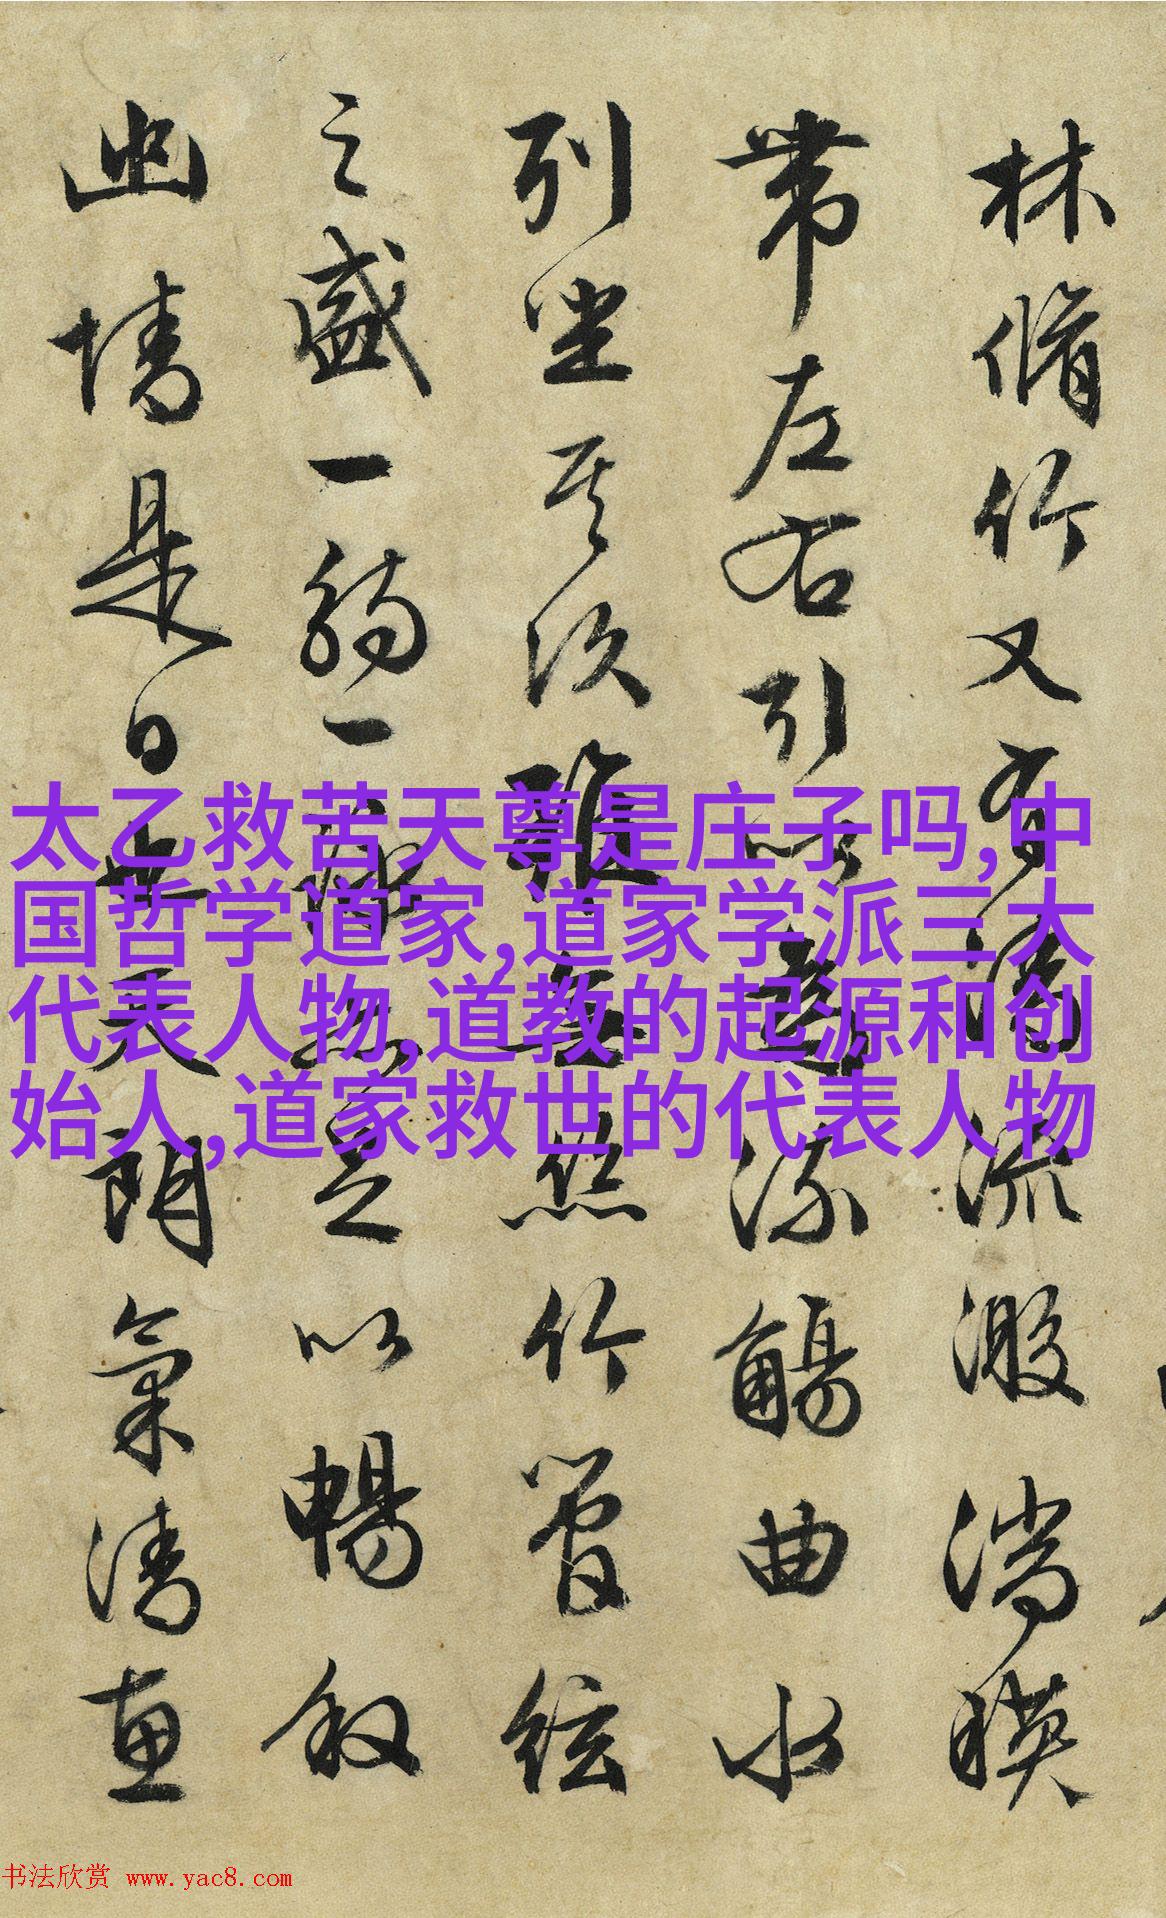 林脩竹又有清流激湍暎
帶左右引以為流觴曲水
列坐其次雖無絲竹管絃
之盛一觴一詠亦足以暢叙
幽情是日也天朗氣清惠
太乙救苦天尊是庄子吗,中
国哲学道家,道家学派三大
代表人物,道教的起源和创
始人,道家救世的代表人物
书法欣赏 www.yac8.com